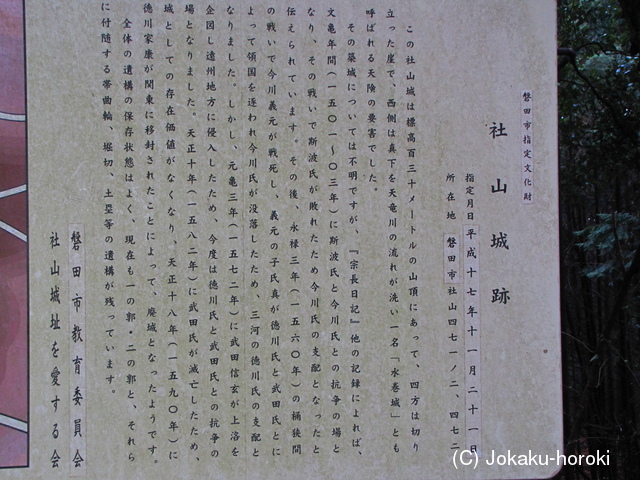 磐田市指定文化財
社山城跡
指定月日 平成十七年十一月二十一日
所在地 磐田市社山四七一ノ二、四七二
この社山城は標高百三十メートルの山頂にあって、四方は切り
立った崖で、西側は真下を天竜川の流れが洗い一名「水巻城」とも
呼ばれる天険の要害でした。
その築城については不明ですが、『宗長日記』他の記録によれば、
文亀年間（一五〇一～〇三年）に斯波氏と今川氏との抗争の場と
なり、その戦いで斯波氏が敗れたため今川氏の支配となったと
伝えられています。その後、永禄三年（一五六〇年）の桶狭間
の戦いで今川義元が戦死し、義元の子氏真が徳川氏と武田氏とに
よって領国を逐われ今川氏が没落したため、三河の徳川氏の支配と
なりました。しかし、元亀三年（一五七二年）に武田信玄が上洛を
企図し遠州地方に侵入したため、今度は徳川氏と武田氏との抗争の
場となりました。天正十年（一五八二年）に武田氏が滅亡したため、
城としての存在価値がなくなり、天正十八年（一五九〇年）に
徳川家康が関東に移封されたことによって、廃城となったようです。
全体の遺構の保存状態はよく、現在も一の郭・二の郭と、それら
に付随する帯曲輪、堀切、土塁等の遺構が残っています。
磐田市教育委員会
社山城址を愛する会
(C) Jokaku-horoki